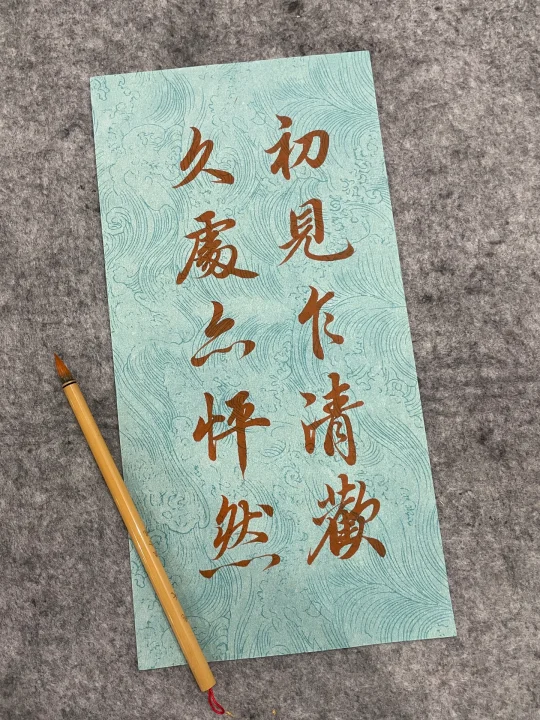 初見乍清歡
久處亦怦然